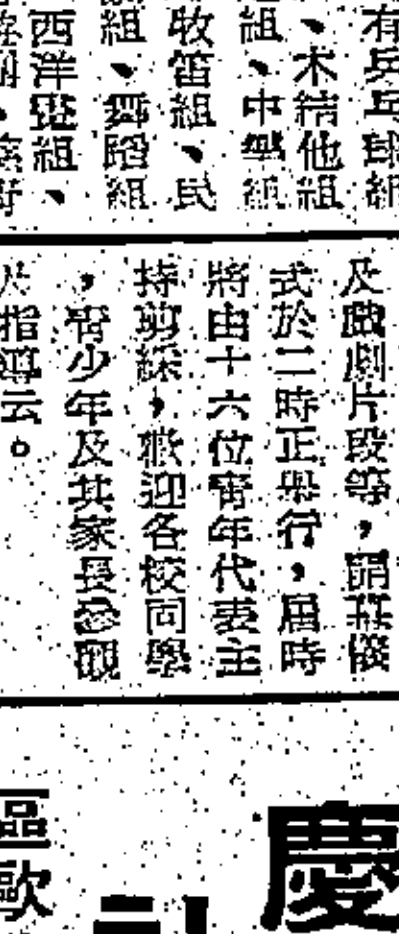 有乒乓球組
、木結他組
組、中樂組
牧笛組、民
組、舞蹈組
西洋畫組、
及戲劇片段等,開幕儀
式於二時正舉行,屆時
將由十六位青年代表主
持剪綵,歡迎各校同學
,青少年及其家長參觀
指導云。
慶
區歐